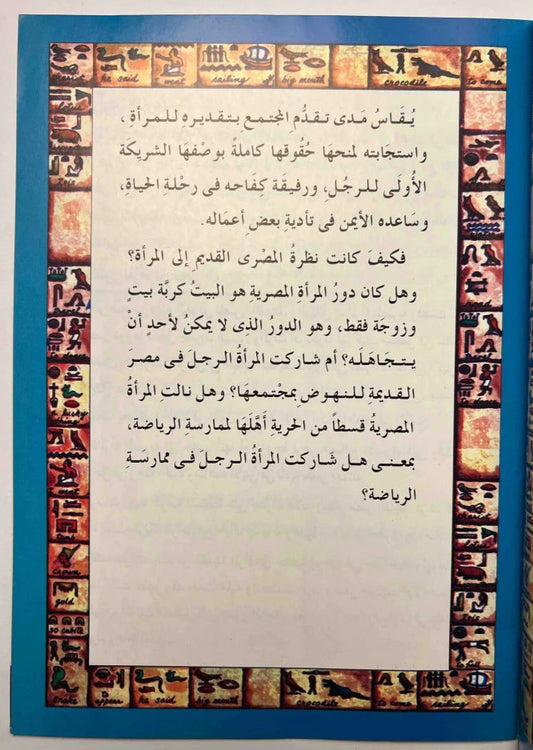 cherish he said I went sailing if big mouth crocodile to come
يُقَاسُ مَدى تقدُّمِ المجتمعِ بتقديرِهِ للمرأةِ،
واستجابته لمنحهَا حُقُوقها كاملةً بوصْفهَا الشريكَة
الأُولَى للرجُلِ، ورفيقَة كِفَاحه فى رحْلةِ الحياةِ،
وسَاعده الأيمن فى تأديةِ بعضِ أعمَاله.
فكيفَ كانت نظرةُ المصْرى القديمِ إلى المرأة؟
وهل كان دورُ المرأةِ المصرية هو البيتُ كربَّة بيتٍ
وزوجَة فقط، وهو الدورُ الذِى لا يمكنُ لأحدٍ أنْ
يتجَاهَلَه؟ أم شاركت المرأةُ الرجلَ فى مصرَ
القديمةِ للنهوضِ بمجْتمعهَا؟ وهل نالتِ المرأةُ
المصريةُ قسطاً من الحريةِ أهَّلَهَا لممارسة الرياضة،
بمعنى هل شَاركت المرأةُ الرجلَ فى ممارسَةِ
الرياضة؟
crown
gold
so cubits
Isis
to fall
snake appear he said big mouth crocodile to come sailing if